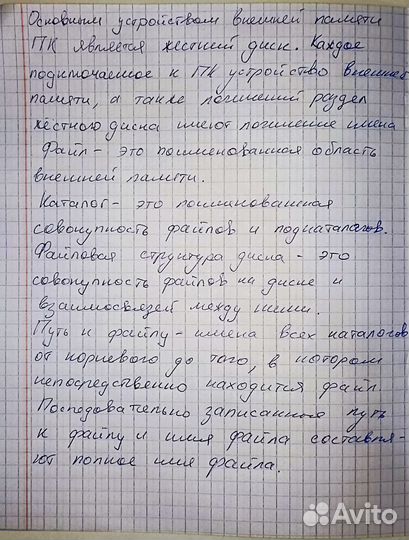 Основным устройством внешней памяти
ПК является жесткий диск. Каждое
подключаемое к ПК устройство внешней
памяти, а также логический раздел
жёсткого диска имеют логические имена
Файл - это поименованная область
внешней памяти.
Каталог - это поименованная
совокупность файлов и подкаталогов.
Файловая структура диска - это
совокупность файлов на диске и
взаимосвязей между ними.
Путь к файлу - имена всех каталогов
от корневого до того, в котором
непосредственно находится файл.
Последовательно записанного путь
к файлу и имя файла составля-
ют полное имя файла.
Avito